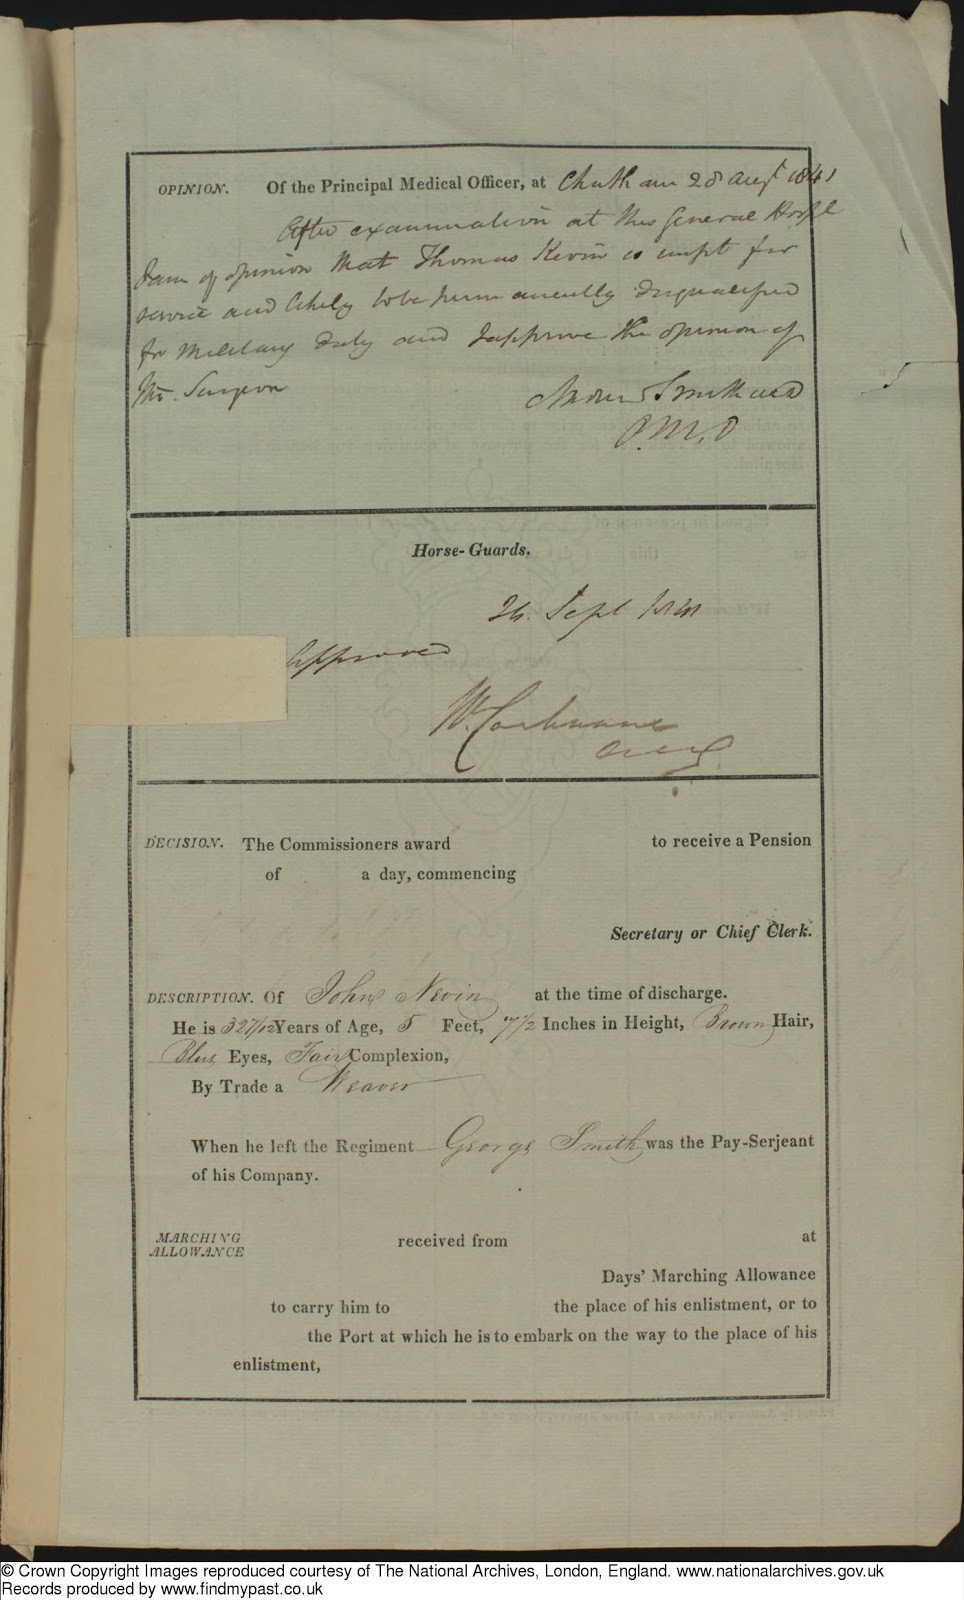 OPINION. Of the Principal Medical Officer, at Chatham 28 Augt 1841
After examination at this General Hospl
I am of opinion that Thomas Kevin is unfit for
service and likely to be permanently disqualified
for Military duty and I approve the opinion of
the Surgeon
Andrew Smith MD
P.M.O
Horse-Guards.
24. Sept 1841
Approved
W. Cochrane
DECISION. The Commissioners award to receive a Pension
of a day, commencing
Secretary or Chief Clerk.
DESCRIPTION. Of John Nevin at the time of discharge.
He is 32 7/12 Years of Age, 5 Feet, 7 1/2 Inches in Height, Brown Hair,
Blue Eyes, Fair Complexion,
By Trade a Weaver
When he left the Regiment George Smith was the Pay-Serjeant
of his Company.
MARCHING
ALLOWANCE received from at
Days' Marching Allowance
to carry him to the place of his enlistment, or to
the Port at which he is to embark on the way to the place of his
enlistment,
© Crown Copyright Images reproduced courtesy of The National Archives, London, England. www.nationalarchives.gov.uk
Records produced by www.findmypast.co.uk